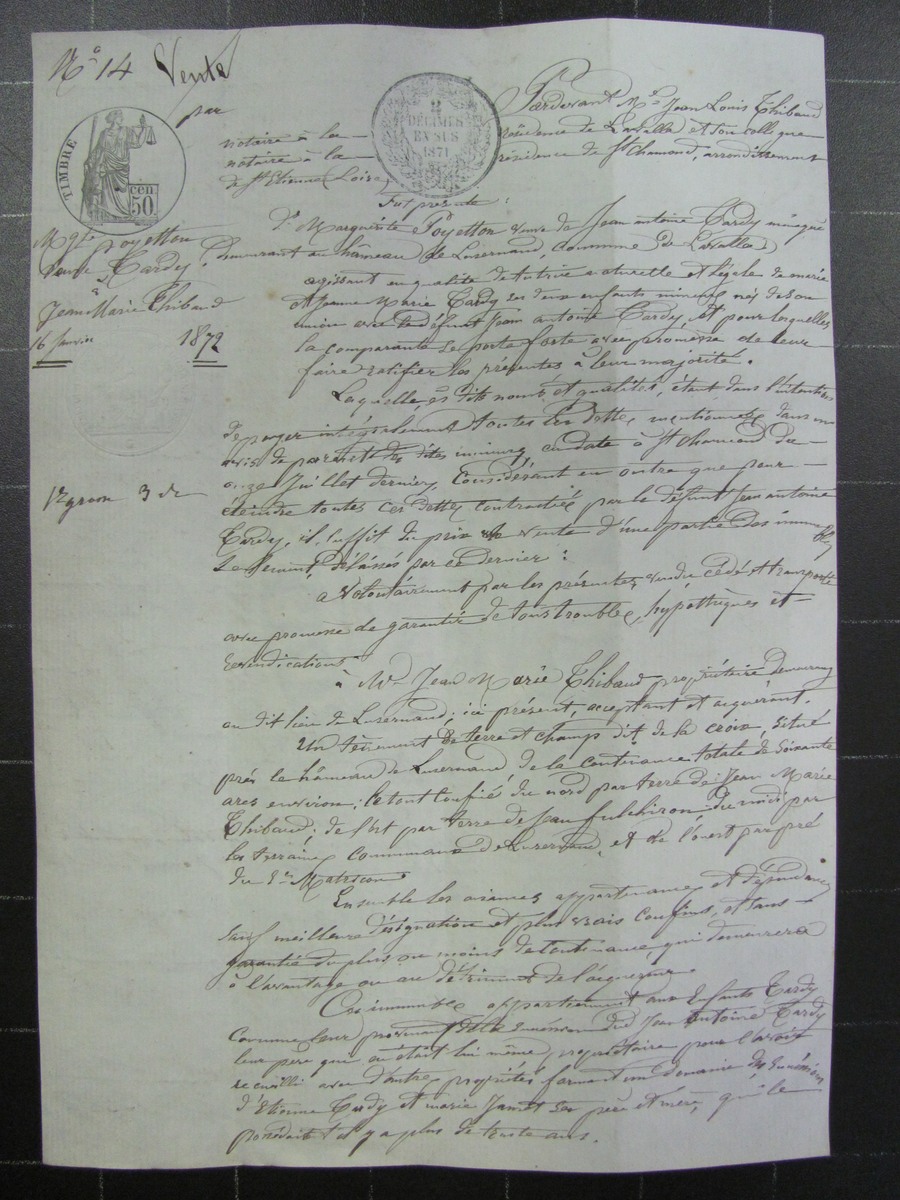 N° 14 Vente
par
TIMBRE
50 cen
2
DÉCIMES
EN SUS
1871
Mgte Poyetton
Veuve Tardy
à
Jean Marie Thibaud
16 Janvier 1872
1re grosse 3
Pardevant Me Jean Louis Thibaud
notaire à la résidence de Lavalla et son collègue
notaire à la résidence de St Chamond, arrondissement
de St Etienne Loire
Fut présente :
De Marguerite Poyetton veuve de Jean antoine Tardy
demeurant au hâmeau de Luzernaud, commune de Lavalla
agissant en qualité de tutrice naturelle et légale de marie
et Jeanne Marie Tardy ses deux enfants mineurs nés de son
union avec le défunt Jean antoine Tardy, et pour lesquelles
la comparante se porte forte avec promesse de leur
faire ratifier les présentes à leur majorité.
Laquelle, ès dits noms et qualités, étant dans l'intention
de payer intégralement toutes les dettes mentionnées dans un
avis de parents des dites mineures en date à St Chamond du
onze Juillet dernier, Considérant en outre que pour
éteindre toutes ces dettes contractées par le défunt Jean antoine
Tardy, il suffit du prix de vente d'une partie des immeubles
délaissés par ce dernier :
a volontairement par les présentes vendu cédé et transporté
avec promesse de garantie de tous troubles, hypothèques et
revendications
à Mr Jean Marie Thibaud propriétaire demeurant
au dit lieu de Luzernaud, ici présent, acceptant et acquérant.
Un tènement de terre et champs dit de la croix, situé
près le hâmeau de Luzernaud de la contenance totale de soixante
ares environ ; le tout confiné du nord par terre de Jean Marie
Thibaud ; de l'est par terre de Jean fulchiron, du midi par
les terrains communaux de Luzernaud, et de l'ouest par pré
du Sr Matricon
Ensemble les aisances appartenances et dépendances
sauf meilleure désignation et plus vrais confins, et sans
garantie du plus ou moins de contenance qui demeurera
à l'avantage ou au détriment de l'acquéreur.
Ces immeubles appartiennent aux Enfants Tardy
comme leur provenant de la succession du dit Jean Antoine Tardy
leur père qui en était lui même propriétaire pour l'avoir
recueilli avec d'autres propriétés formant un domaine des successions
d'Etienne Tardy et marie Jamet ses père et mère, qui le
possédaient il y a plus de trente ans.